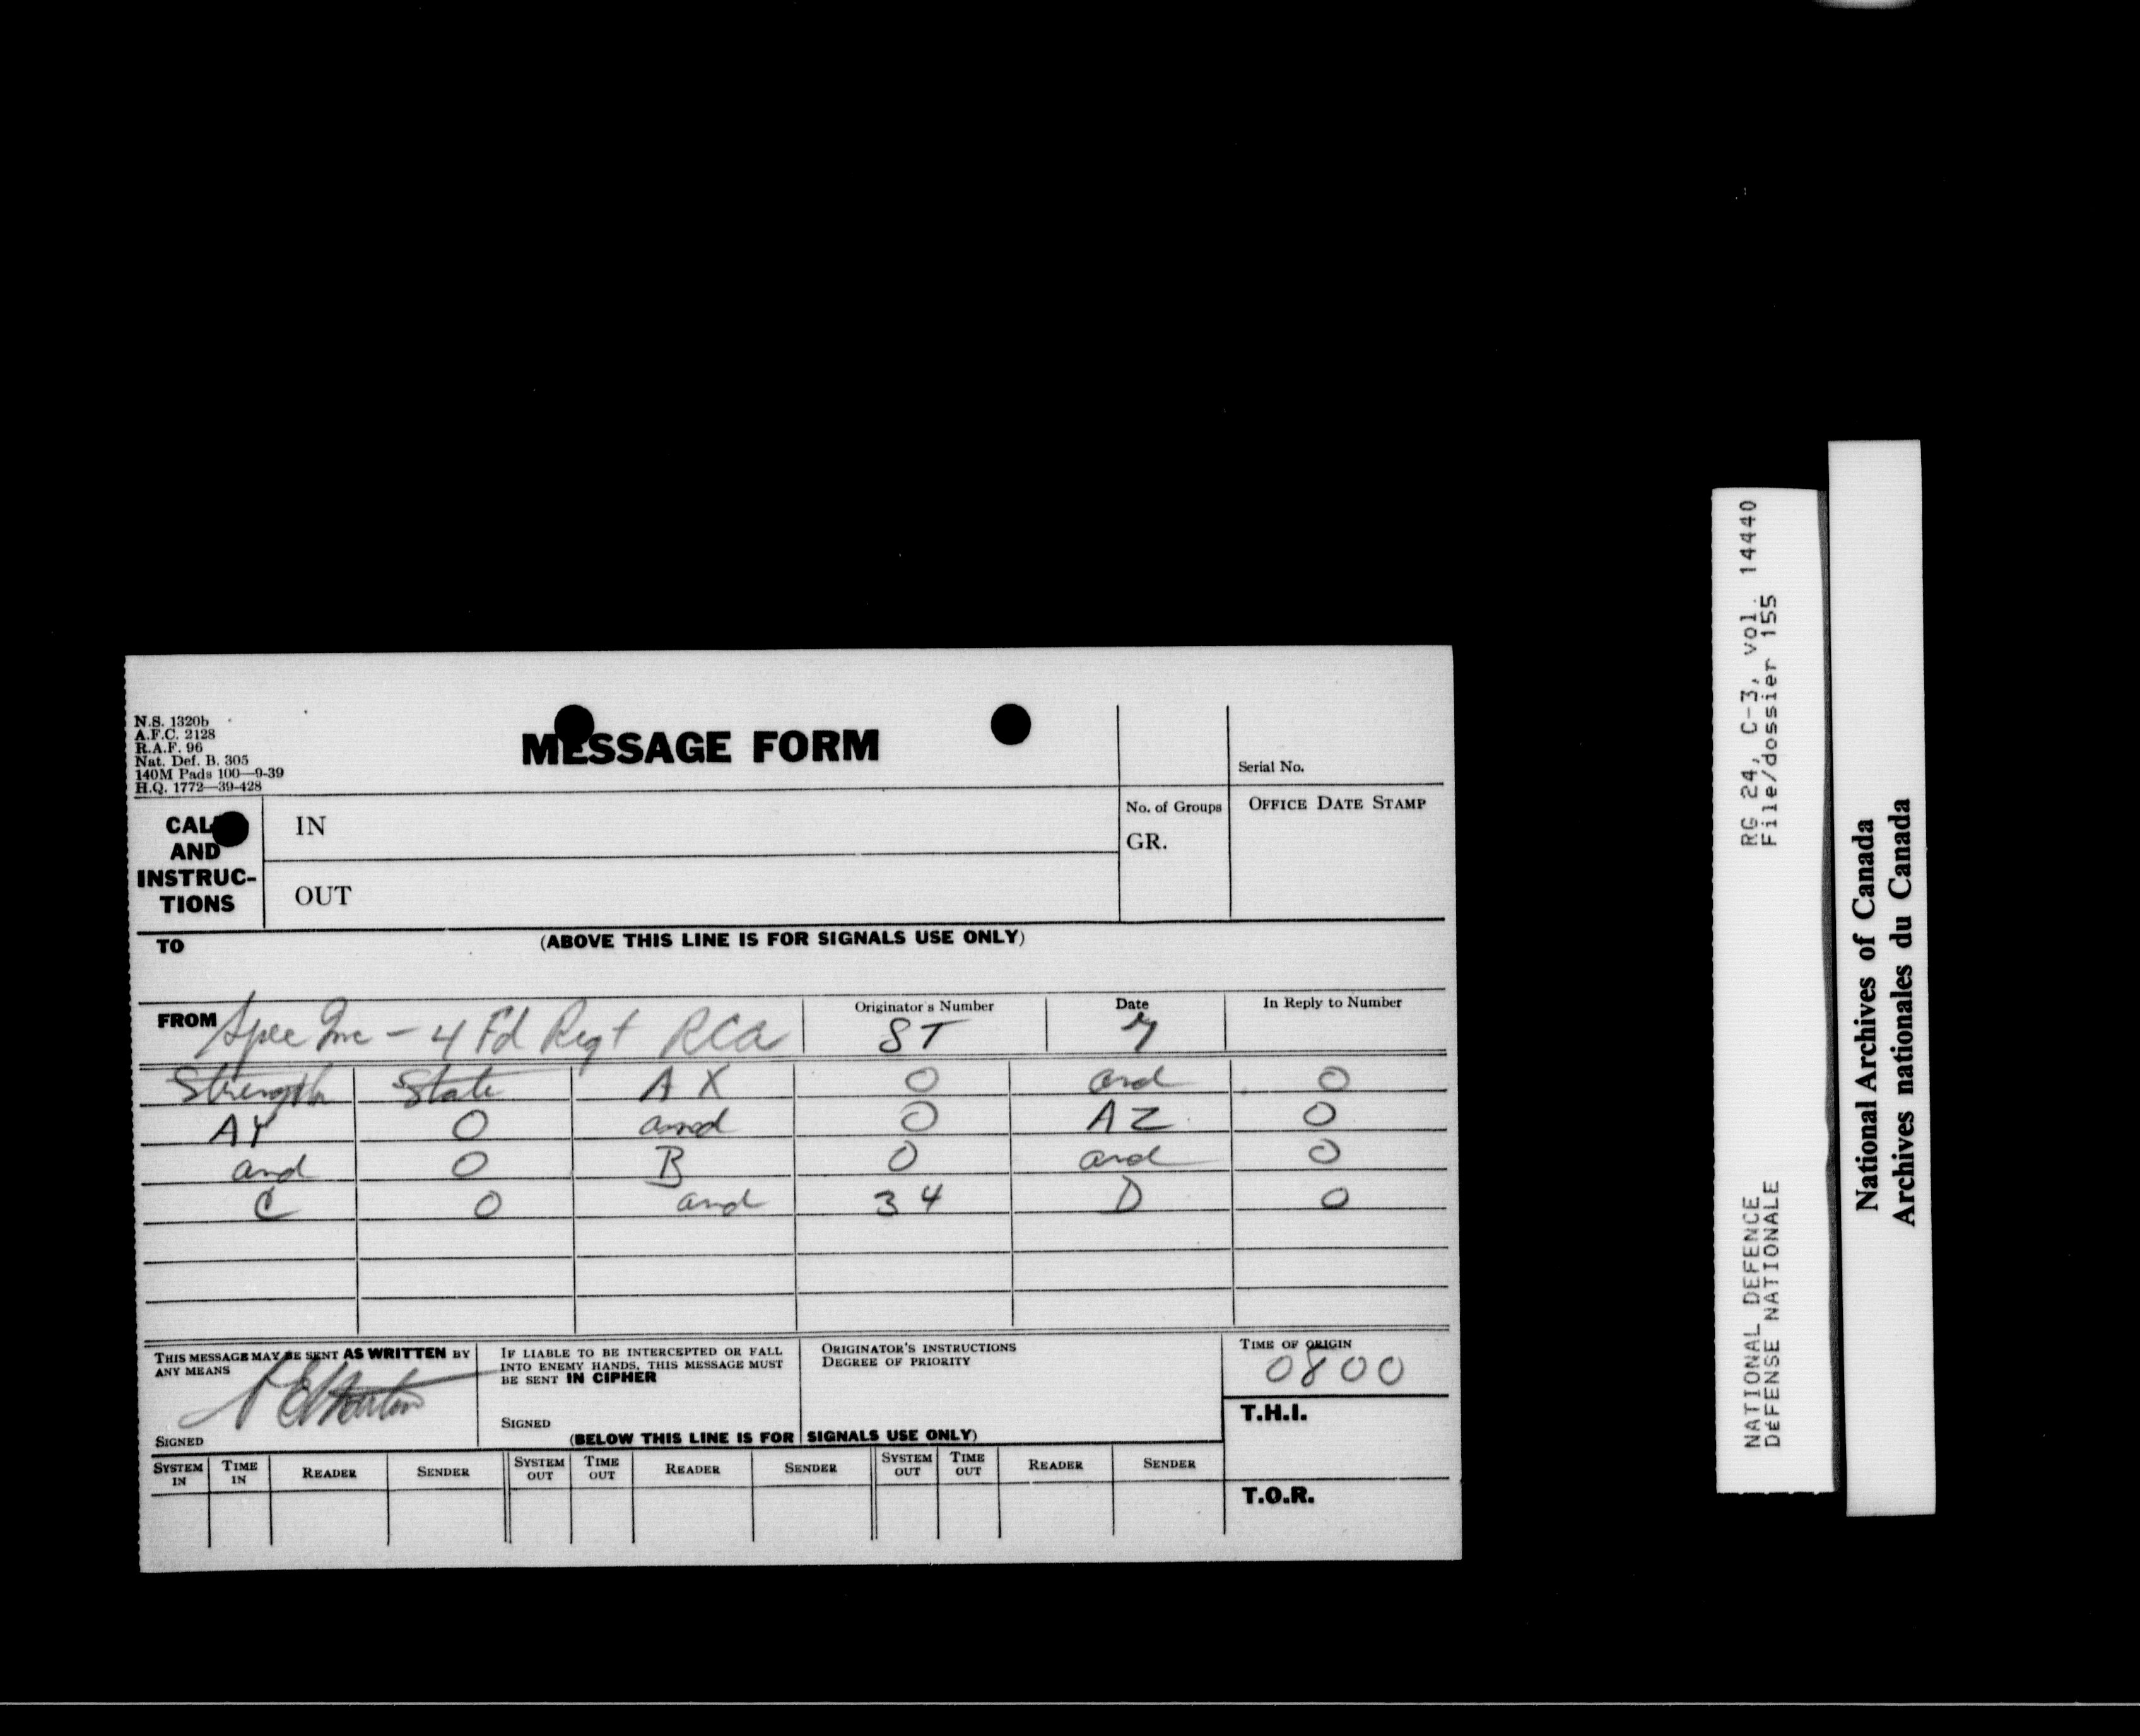 N.S. 1320b
A.F.C. 2128
R.A.F. 96
Nat. Def. B. 305
140M Pads 100—9-39
H.Q. 1772—39-428
MESSAGE FORM
Serial No.
CAL
AND
INSTRUC-
TIONS
IN
OUT
No. of Groups
GR.
OFFICE DATE STAMP
TO (ABOVE THIS LINE IS FOR SIGNALS USE ONLY)
FROM Spec Inc - 4 Fd Regt RCA
Originator's Number
ST
Date
7
In Reply to Number
Strength State AX 0 and 0
AY 0 and 0 AZ 0
and 0 B 0 and 0
C 0 and 34 D 0
THIS MESSAGE MAY BE SENT AS WRITTEN BY
ANY MEANS
SIGNED
IF LIABLE TO BE INTERCEPTED OR FALL
INTO ENEMY HANDS, THIS MESSAGE MUST
BE SENT IN CIPHER
SIGNED
ORIGINATOR'S INSTRUCTIONS
DEGREE OF PRIORITY
TIME OF ORIGIN
0800
T.H.I.
(BELOW THIS LINE IS FOR SIGNALS USE ONLY)
SYSTEM IN TIME IN READER SENDER SYSTEM OUT TIME OUT READER SENDER SYSTEM OUT TIME OUT READER SENDER
T.O.R.
NATIONAL DEFENCE RG 24, C-3, vol. 14440
DéFENSE NATIONALE File/dossier 155
National Archives of Canada
Archives nationales du Canada